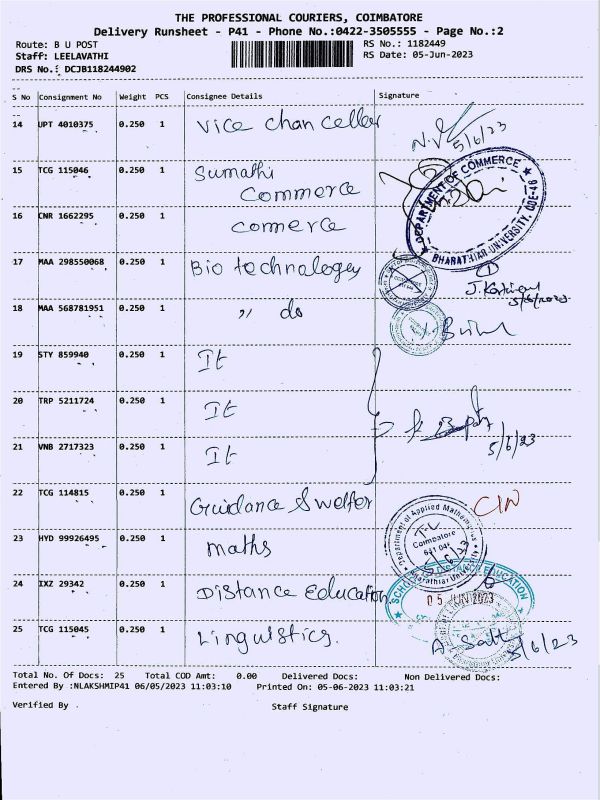 THE PROFESSIONAL COURIERS, COIMBATORE
Delivery Runsheet - P41 - Phone No.:0422-3505555 - Page No.:2
Route: B U POST
RS No.: 1182449
Staff: LEELAVATHI
RS Date: 05-Jun-2023
DRS No.: DCJB118244902
S No Consignment No Weight PCS Consignee Details Signature
14 UPT 4010375 0.250 1 Vice chanceller
5/6/23
15 TCG 115046 0.250 1 Sumathi
Commerce
DEPARTMENT OF COMMERCE
BHARATHIAR UNIVERSITY, CBE-46
16 CNR 1662295 0.250 1 comerce
17 MAA 298550068 0.250 1 Bio technology
18 MAA 568781951 0.250 1 ,, do
19 STY 859940 0.250 1 It
20 TRP 5211724 0.250 1 It
21 VNB 2717323 0.250 1 It
5/6/23
22 TCG 114815 0.250 1 Guidance & welfer
23 HYD 99926495 0.250 1 maths
Department of Applied Mathematics
Coimbatore
641 046
Bharathiar University
24 IXZ 29342 0.250 1 Distance Education
05 JUN 2023
25 TCG 115045 0.250 1 Linguistics.
5/6/23
Total No. Of Docs: 25 Total COD Amt: 0.00 Delivered Docs: Non Delivered Docs:
Entered By :NLAKSHMIP41 06/05/2023 11:03:10 Printed On: 05-06-2023 11:03:21
Verified By Staff Signature